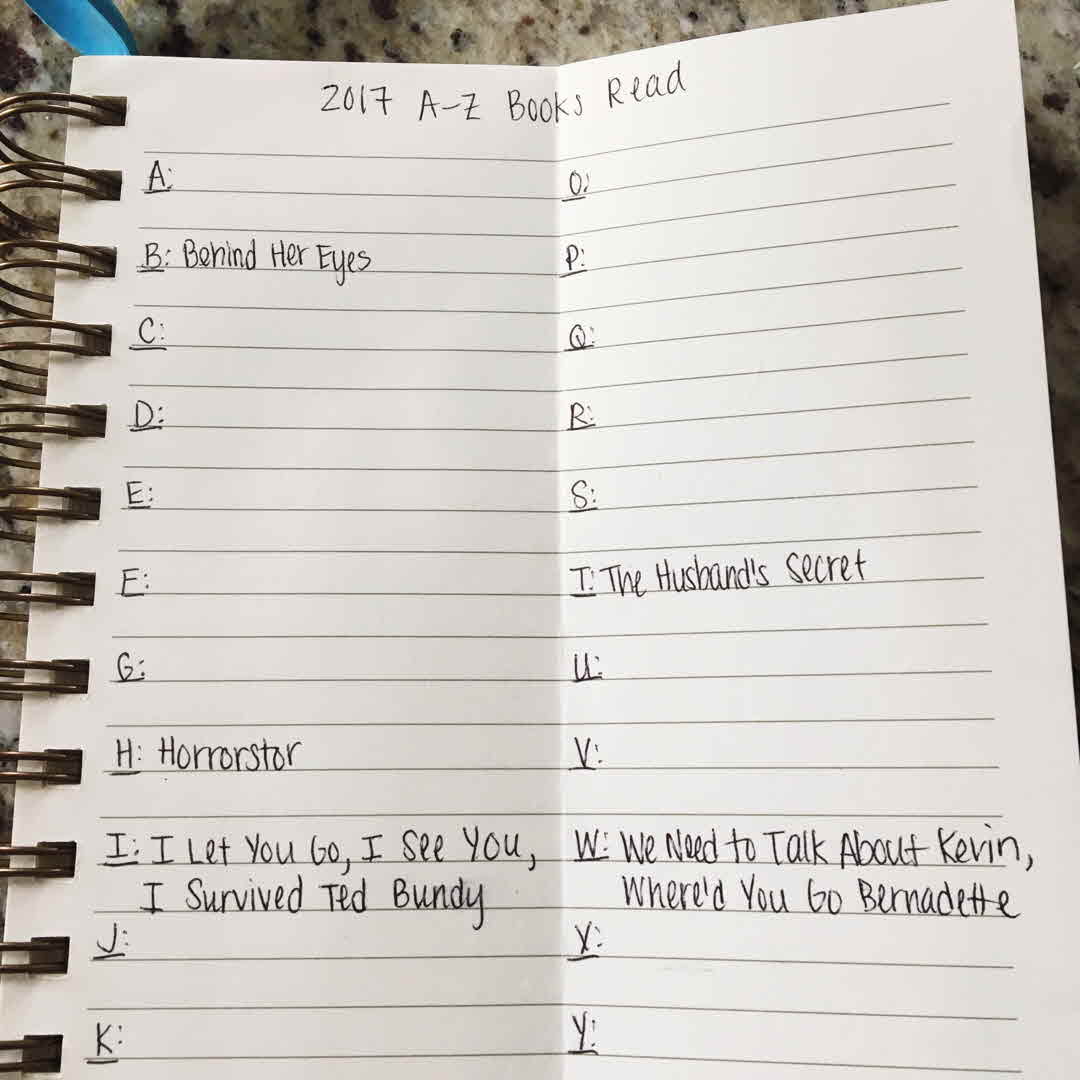 2017 A-Z Books Read
A:
B: Behind Her Eyes
C:
D:
E:
F:
G:
H: Horrorstor
I: I Let You Go, I See You,
I Survived Ted Bundy
J:
K:
O:
P:
Q:
R:
S:
T: The Husband's Secret
U:
V:
W: We Need to Talk About Kevin,
Where'd You Go Bernadette
X:
Y: